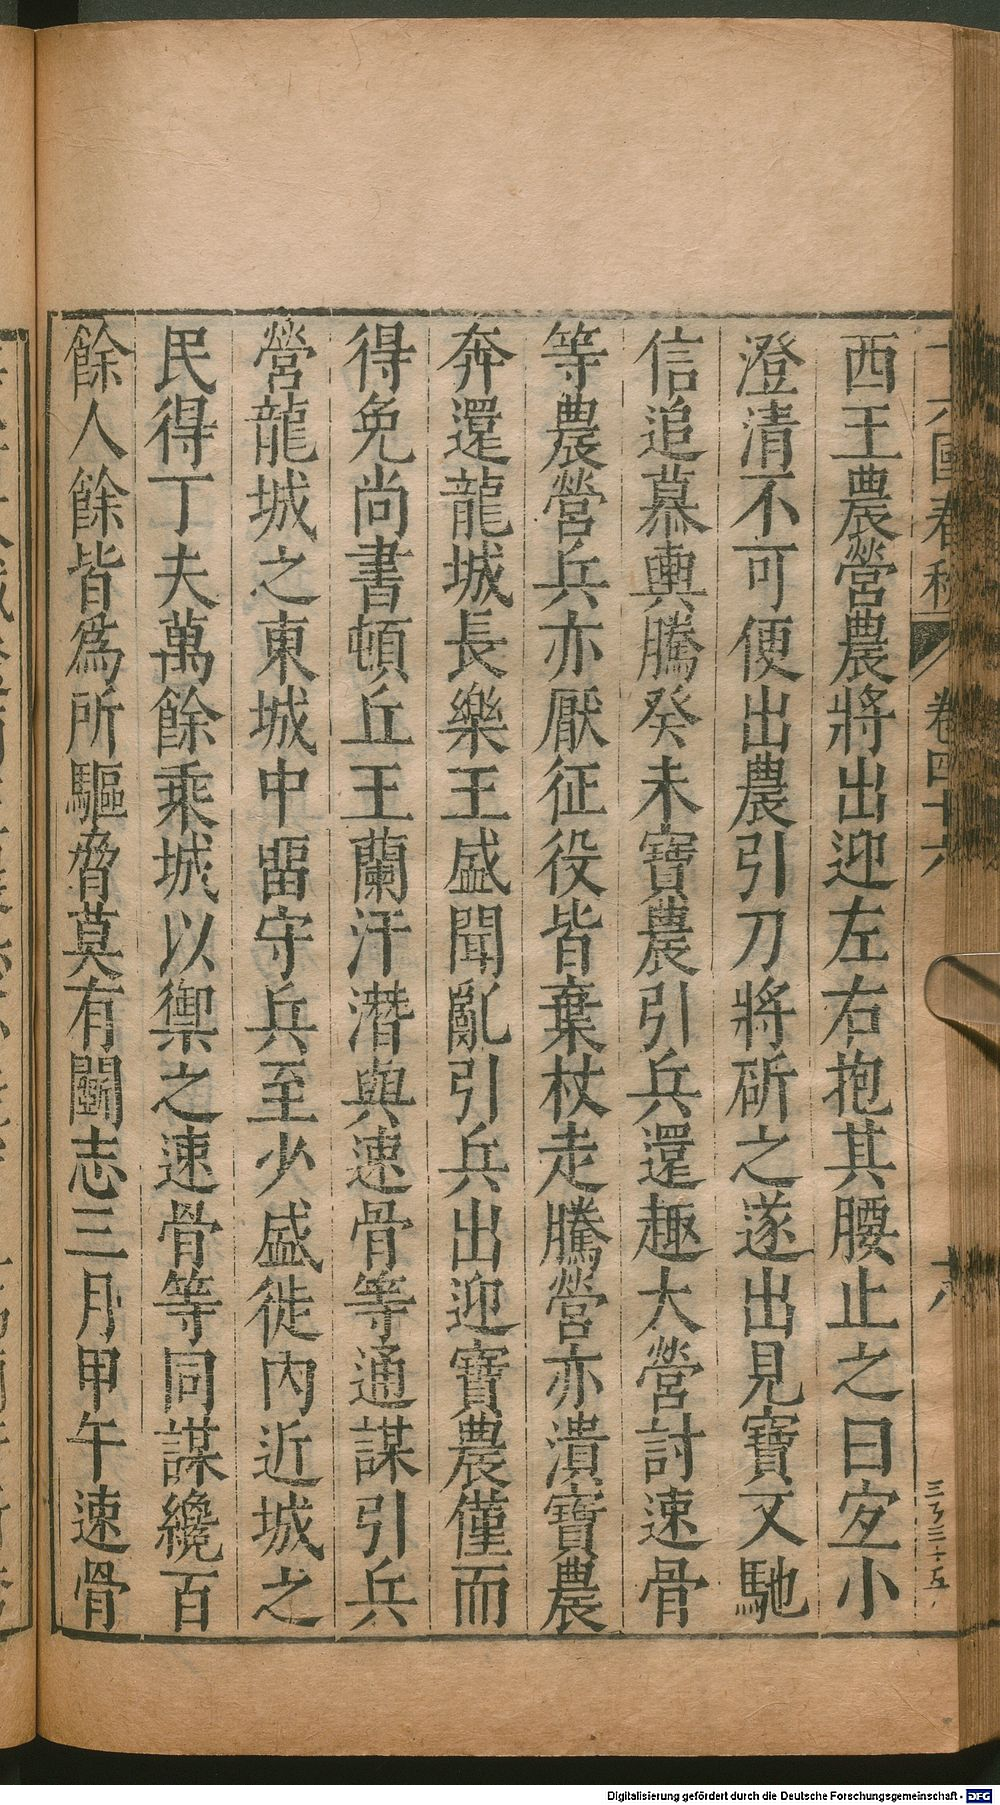 西王農營農將出迎左右抱其腰止之曰宜小
澄清不可便出農引刀將斫之遂出見寶又馳
信追慕輿騰癸未寶農引兵還趣大營討速骨
等農營兵亦厭征役皆棄杖走騰營亦潰寶農
奔還龍城長樂王盛聞亂引兵出迎寶農僅而
得免尚書頓丘王蘭汗潛與速骨等通謀引兵
營龍城之東城中留守兵至少盛徙內近城之
民得丁夫萬餘乘城以禦之速骨等同謀纔百
餘人餘皆為所驅脅莫有鬬志三月甲午速骨
十六國春秋 卷四十六 十八
Digitalisierung gefördert durch die Deutsche Forschungsgemeinschaft - DFG